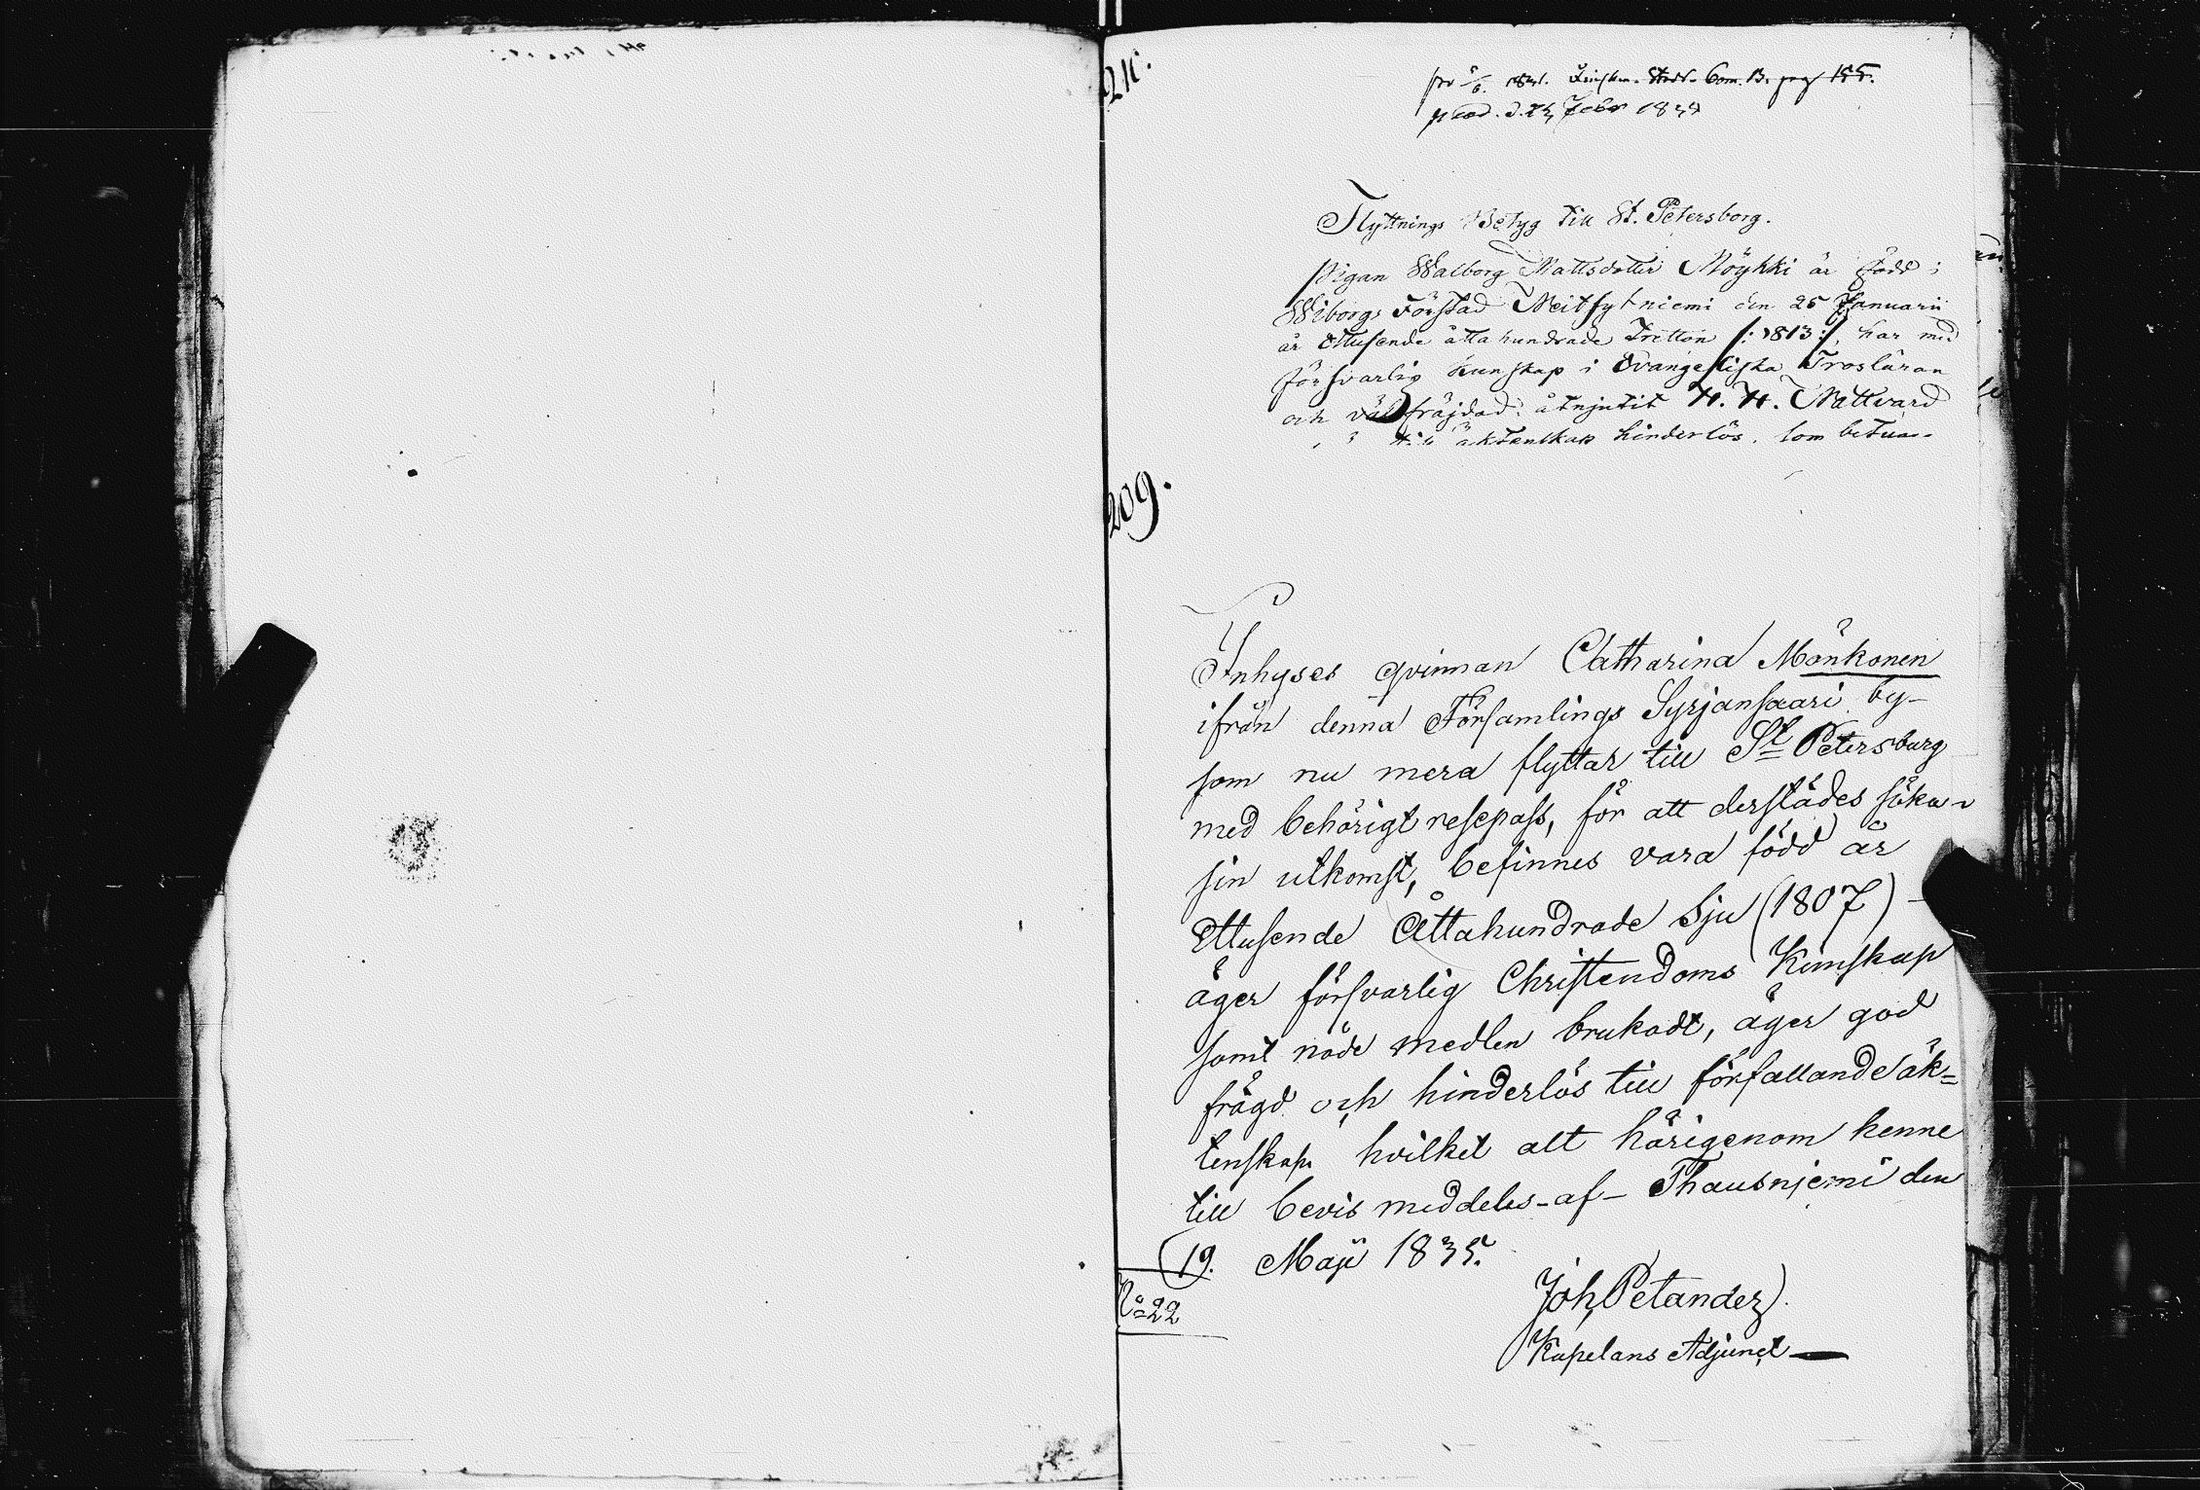 210.
1831. Com. B. pag 155.
1834
Flyttnings Betyg till St. Petersborg.
Pigan Walborg Mattsdotter Möykki är född i
Wiborgs Förstad Neitsytniemi den 25 Januarii
år Ettusende åtta hundrade Tretton /: 1813 :/, har med
försvarlig kunskap i Evangeliska Trosläran
och väl fräjdad åtnjutit H. H. Nattvard
till äktenskap hinderlös. som
209.
Inhyses qvinnan Catharina Mönkönen
ifrån denna Församlings Syrjänsaari by-
som nu mera flyttar till St Petersburg
med behörigt resepass, för att derstädes söka
sin utkomst, befinnes vara född år
Ettusende Åttahundrade Sju (1807) -
äger försvarlig Christendoms Kunskap
samt nåde medlen brukadt, äger god
frägd och hinderlös till förfallande äk=
tenskap hvilket alt härigenom henne
till bevis meddeles - af - Thausnjemi den
19. Maji 1835.
No 22
Joh Petander
Kapelans Adjunct